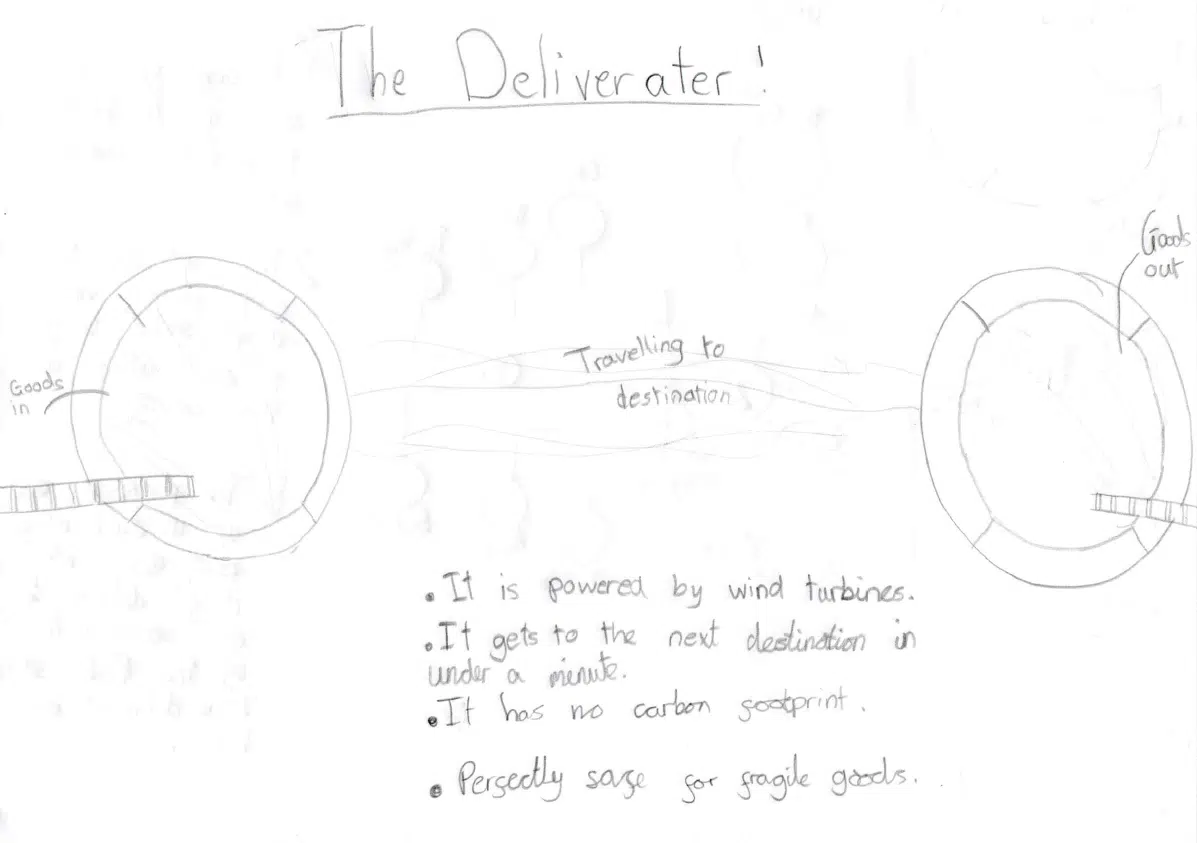 The Deliverater!
Goods
out
Travelling to
destination
Goods
in
• It is powered by wind turbines.
• It gets to the next destination in
under a minute.
• It has no carbon footprint.
• Perfectly safe for fragile goods.